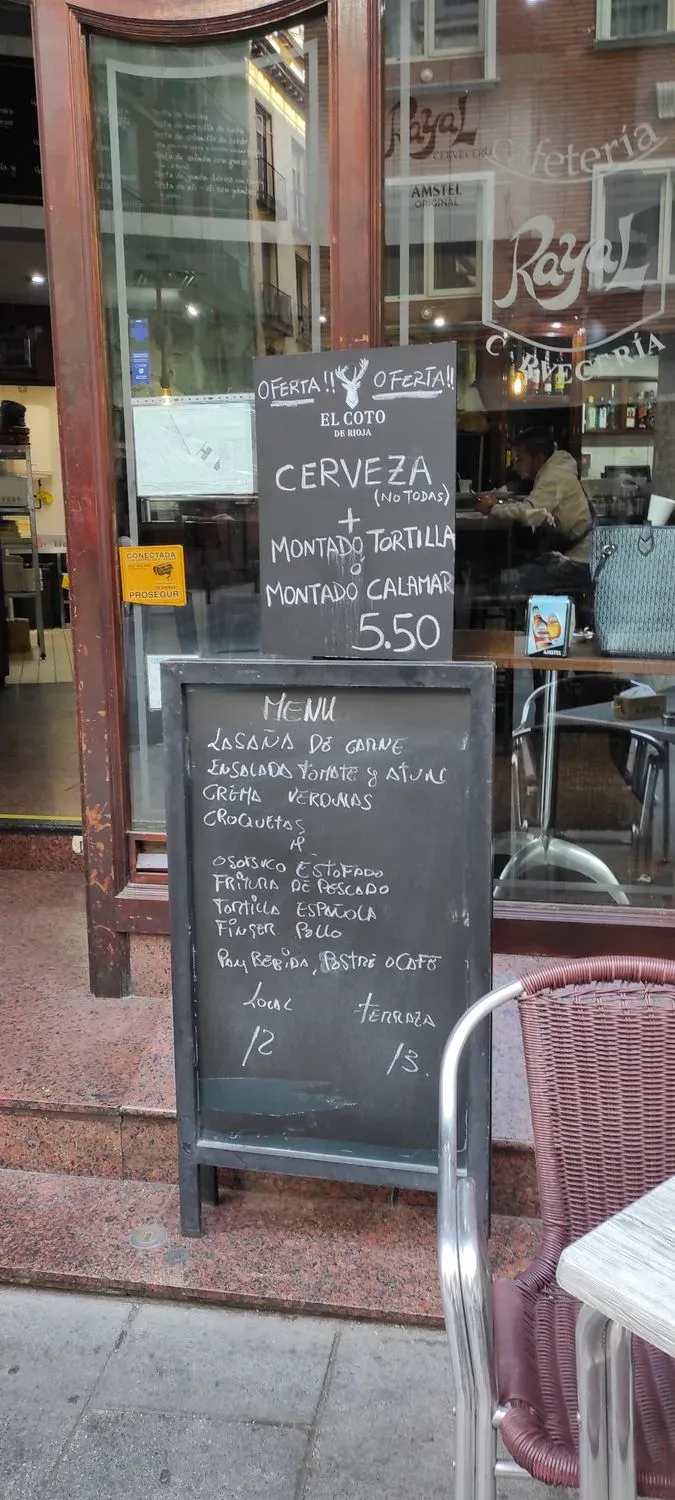 Royal
CERVECERÍA
Cafetería
AMSTEL
ORIGINAL
Royal
CERVECERÍA
OFERTA!! OFERTA!!
EL COTO
DE RIOJA
CERVEZA
(NO TODAS)
+
MONTADO TORTILLA
O
MONTADO CALAMAR
5.50
CONECTADA
PROSEGUR
AMSTEL
MENU
LASAÑA DE CARNE
ENSALADA TOMATE y ATUN
CREMA VERDURAS
CROQUETAS
OSOBUCO ESTOFADO
FRITURA DE PESCADO
TORTILLA ESPAÑOLA
FINGER POLLO
PAN BEBIDA, POSTRE O CAFE
LOCAL TERRAZA
12 13.